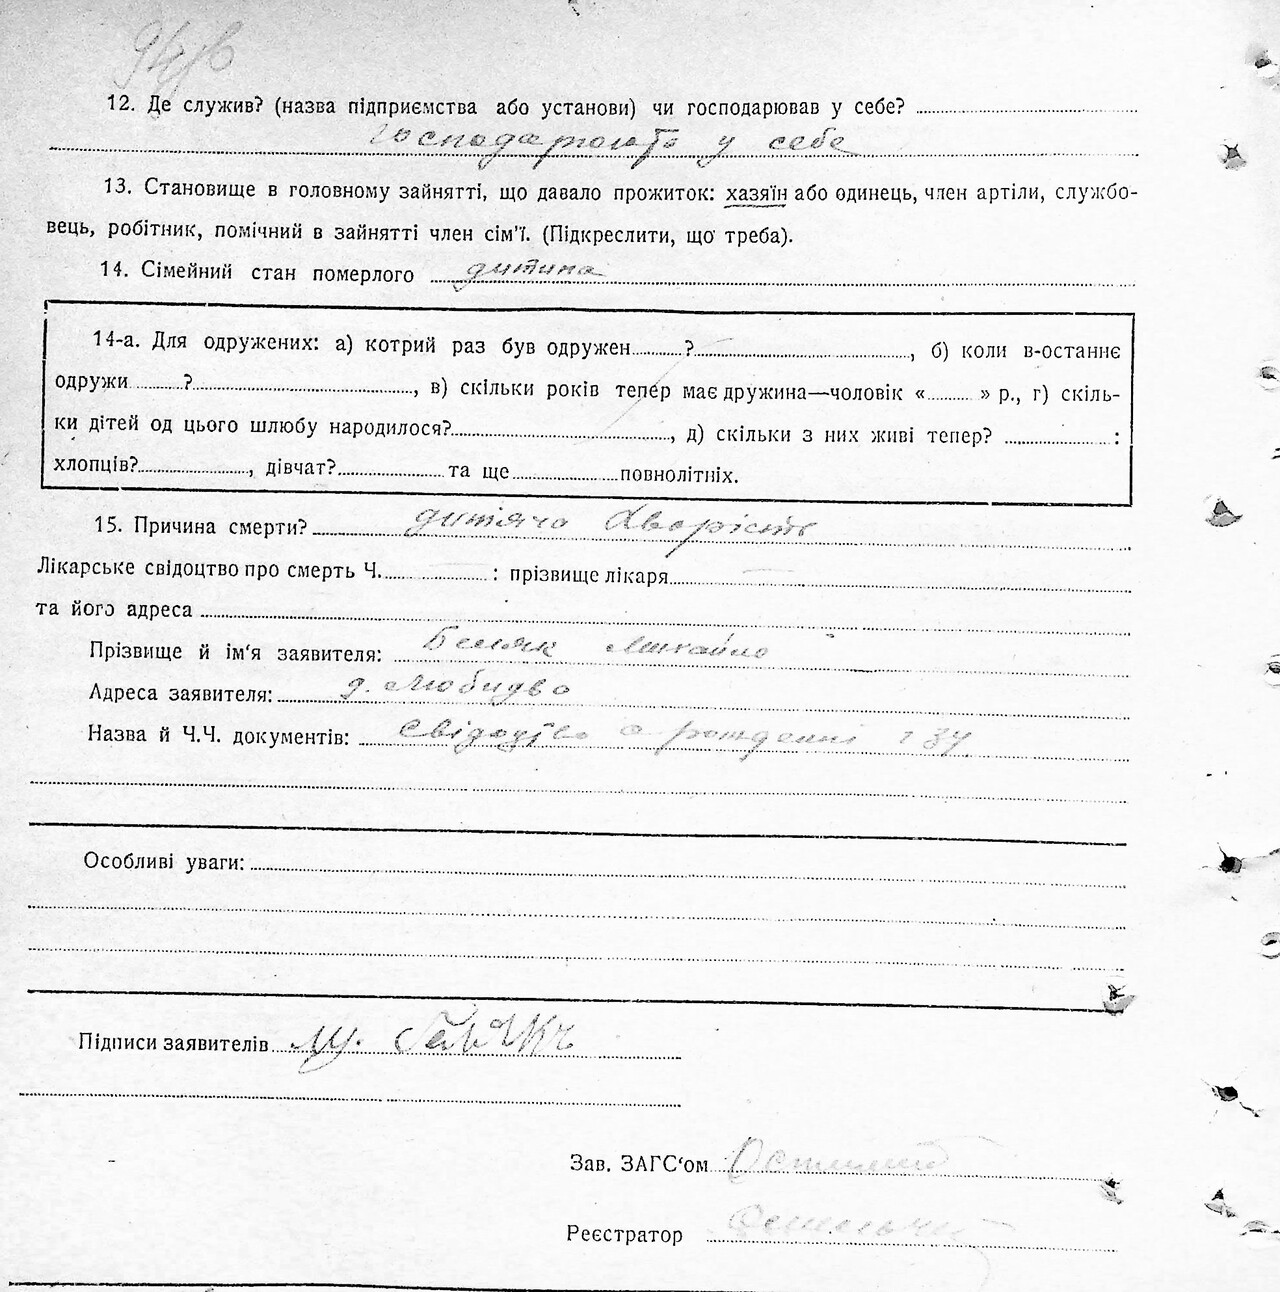 12. Де служив? (назва підприємства або установи) чи господарював у себе?
господарюють у себе
13. Становище в головному зайнятті, що давало прожиток: хазяїн або одинець, член артіли, службо-
вець, робітник, помічний в зайнятті член сім'ї. (Підкреслити, що треба).
14. Сімейний стан померлого дитина
14-а. Для одружених: а) котрий раз був одружен ? , б) коли в-останнє
одружи ? , в) скільки років тепер має дружина—чоловік « » р., г) скіль-
ки дітей од цього шлюбу народилося? , д) скільки з них живі тепер? :
хлопців? , дівчат? та ще повнолітніх.
15. Причина смерти? дитяча хворість
Лікарське свідоцтво про смерть Ч. : прізвище лікаря
та його адреса
Прізвище й ім'я заявителя: Михайло
Адреса заявителя: д.
Назва й Ч.Ч. документів: свідоцтво о рождении 34
Особливі уваги:
Підписи заявителів
Зав. ЗАГС'ом
Реєстратор